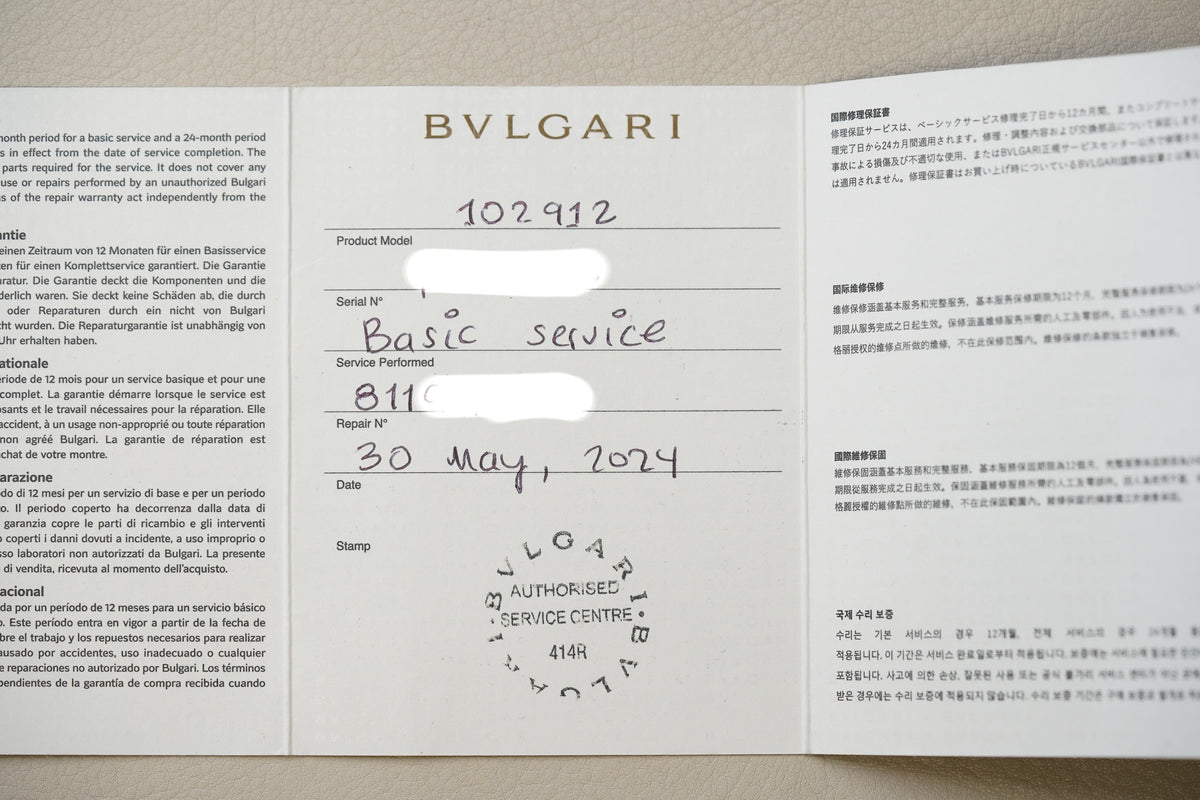 month period for a basic service and a 24-month period
s in effect from the date of service completion. The
parts required for the service. It does not cover any
use or repairs performed by an unauthorized Bulgari
s of the repair warranty act independently from the
ntie
einen Zeitraum von 12 Monaten für einen Basisservice
en für einen Komplettservice garantiert. Die Garantie
aratur. Die Garantie deckt die Komponenten und die
derlich waren. Sie deckt keine Schäden ab, die durch
oder Reparaturen durch ein nicht von Bulgari
cht wurden. Die Reparaturgarantie ist unabhängig von
Uhr erhalten haben.
ationale
ériode de 12 mois pour un service basique et pour une
complet. La garantie démarre lorsque le service est
osants et le travail nécessaires pour la réparation. Elle
accident, à un usage non-approprié ou toute réparation
non agréé Bulgari. La garantie de réparation est
achat de votre montre.
arazione
do di 12 mesi per un servizio di base e per un periodo
to. Il periodo coperto ha decorrenza dalla data di
garanzia copre le parti di ricambio e gli interventi
o coperti i danni dovuti a incidente, a uso improprio o
sso laboratori non autorizzati da Bulgari. La presente
di vendita, ricevuta al momento dell'acquisto.
acional
da por un período de 12 meses para un servicio básico
o. Este período entra en vigor a partir de la fecha de
bre el trabajo y los repuestos necesarios para realizar
ausado por accidentes, uso inadecuado o cualquier
e reparaciones no autorizado por Bulgari. Los términos
pendientes de la garantía de compra recibida cuando
BVLGARI
102912
Product Model
Serial N°
Basic service
Service Performed
811
Repair N°
30 May, 2024
Date
Stamp
BVLGARI • BVLGARI •
AUTHORISED
SERVICE CENTRE
414R
国際修理保証書
修理保証サービスは、ベーシックサービス修理完了日から12カ月間、またコンプリート
理完了日から24カ月間適用されます。修理・調整内容および交換部品について保証します
事故による損傷及び不適切な使用、またはBVLGARI正規サービスセンター以外で
は適用されません。修理保証書はお買い上げ時についているBVLGARI国際保証書
国际维修保修
维修保修涵盖基本服务和完整服务，基本服务保修期限为12个月，完整服务保修期限为
期限从服务完成之日起生效。保修涵盖维修服务所需的人工及零部件。因人为使用不当，
格丽授权的维修点所做的维修，不在此保修范围内。维修保修的条款独立于
國際維修保固
維修保固涵蓋基本服務和完整服務，基本服務保固期限為12個月，完整服務保固期限為
期限從服務完成之日起生效。保固涵蓋維修服務所需的人工及零部件。因人為使用不當，
格麗授權的維修點所做的維修，不在此保固範圍內。維修保固的條款獨立於
국제 수리 보증
수리는 기본 서비스의 경우 12개월, 전체 서비스의 경우 24개월 동
적용됩니다. 이 기간은 서비스 완료일로부터 적용됩니다. 보증에는 서비스에 필요한
포함됩니다. 사고에 의한 손상, 잘못된 사용 또는 공식 불가리 서비스 센터가 아닌
받은 경우에는 수리 보증에 적용되지 않습니다. 수리 보증 기간은 구매 보증과